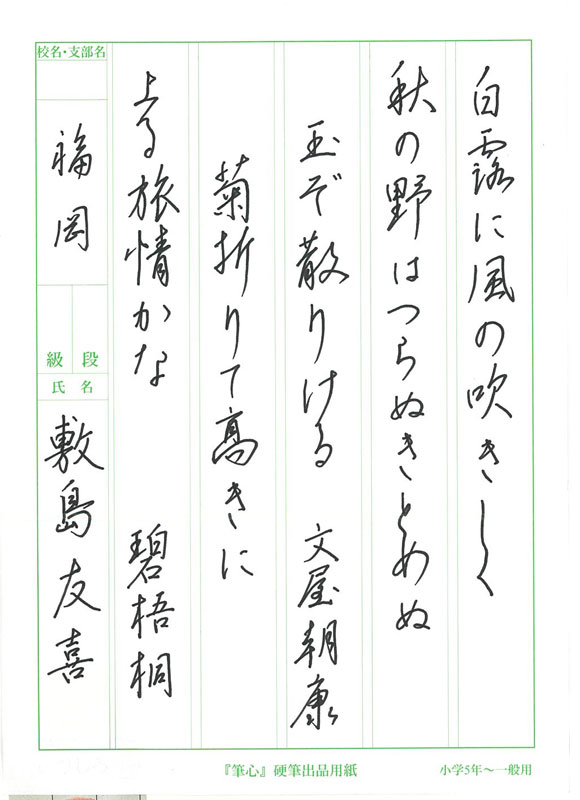 白露に風の吹きしく
秋の野はつらぬきとめぬ
玉ぞ散りける 文屋朝康
菊折りて高きに
上る旅情かな 碧梧桐
校名・支部名
福岡
級 段
氏名
敷島友喜
『筆心』硬筆出品用紙 小学5年〜一般用